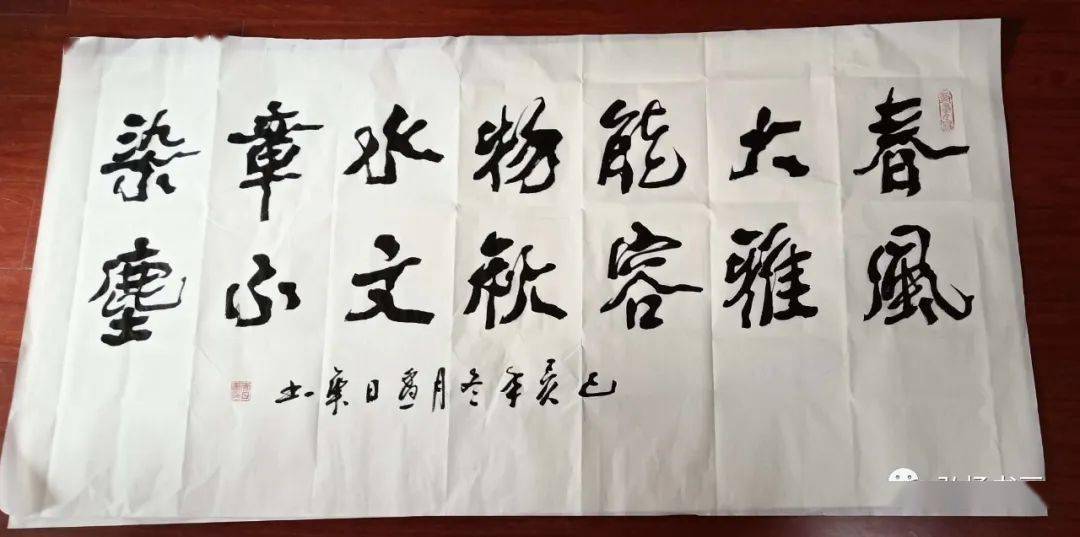 春風
大雅
能容
物秋
水文
章不
染塵
己亥年冬月日书